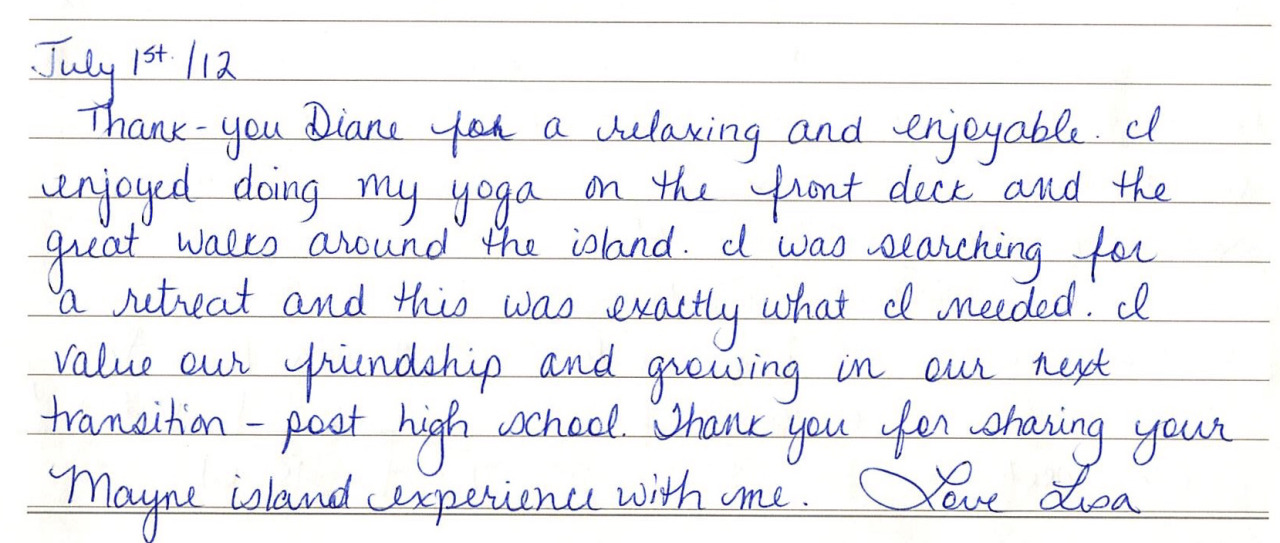 July 1st. /12
Thank-you Diane for a relaxing and enjoyable. I
enjoyed doing my yoga on the front deck and the
great walks around the island. I was searching for
a retreat and this was exactly what I needed. I
value our friendship and growing in our next
transition - post high school. Thank you for sharing your
Mayne island experience with me. Love Lisa